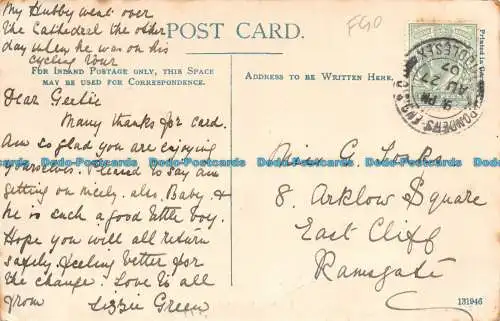 My Hubby went over
the Cathedral the other
day when he was on his
cycling tour
POST CARD.
FGO
Printed in
FOR INLAND POSTAGE ONLY, THIS SPACE
MAY BE USED FOR CORRESPONDENCE.
ADDRESS TO BE WRITTEN HERE.
PONDERS END
MIDDLESEX
9 PM
AU 27
07
Dear Gertie
Many thanks for card.
Am so glad you are enjoying
yourselves. Pleased to say am
getting on nicely. also Baby, &
he is such a good little boy.
Hope you will all return
safely feeling better for
the change. Love to all
from Lizzie Green
Miss G.
8. Arklow Square
East Cliff
Ramsgate
131946
Dodo-Postcards Dodo-Postcards Dodo-Postcards Dodo-Postcards